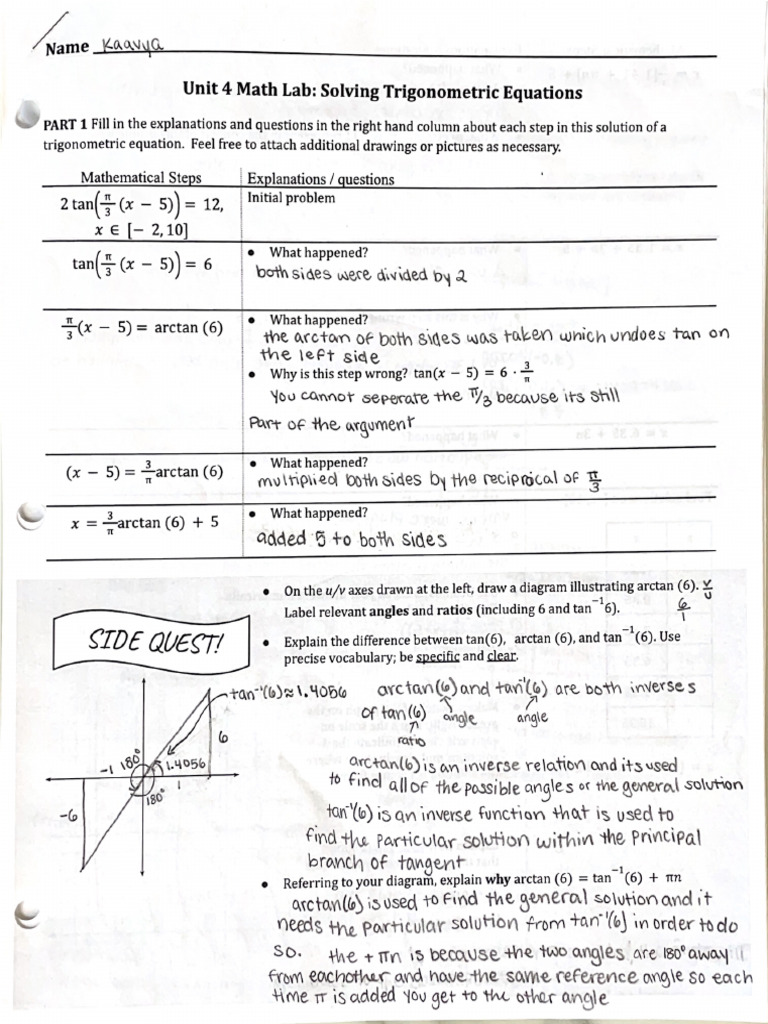 Name Kaavya
Unit 4 Math Lab: Solving Trigonometric Equations
PART 1 Fill in the explanations and questions in the right hand column about each step in this solution of a
trigonometric equation. Feel free to attach additional drawings or pictures as necessary.
Mathematical Steps
Explanations / questions
2 tan(π/3 (x − 5)) = 12,
x ∈ [− 2, 10]
Initial problem
tan(π/3 (x − 5)) = 6
• What happened?
both sides were divided by 2
π/3(x − 5) = arctan (6)
• What happened?
the arctan of both sides was taken which undoes tan on
the left side
• Why is this step wrong? tan(x − 5) = 6 · 3/π
You cannot seperate the π/3 because its still
Part of the argument
(x − 5) = 3/π arctan (6)
• What happened?
multiplied both sides by the reciprocal of π/3
x = 3/π arctan (6) + 5
• What happened?
added 5 to both sides
SIDE QUEST!
• On the u/v axes drawn at the left, draw a diagram illustrating arctan (6). v/u
Label relevant angles and ratios (including 6 and tan⁻¹6). 6/1
• Explain the difference between tan(6), arctan (6), and tan⁻¹(6). Use
precise vocabulary; be specific and clear.
tan⁻¹(6)≈1.4056
6
-1
180°
1.4056
1
180°
-6
arctan(6) and tan⁻¹(6) are both inverses
of tan(6) angle angle
ratio
arctan(6) is an inverse relation and its used
to find all of the possible angles or the general solution
tan⁻¹(6) is an inverse function that is used to
find the particular solution within the principal
branch of tangent
• Referring to your diagram, explain why arctan (6) = tan⁻¹(6) + πn
arctan(6) is used to find the general solution and it
needs the particular solution from tan⁻¹(6) in order to do
so. the + πn is because the two angles are 180° away
from eachother and have the same reference angle so each
time π is added you get to the other angle